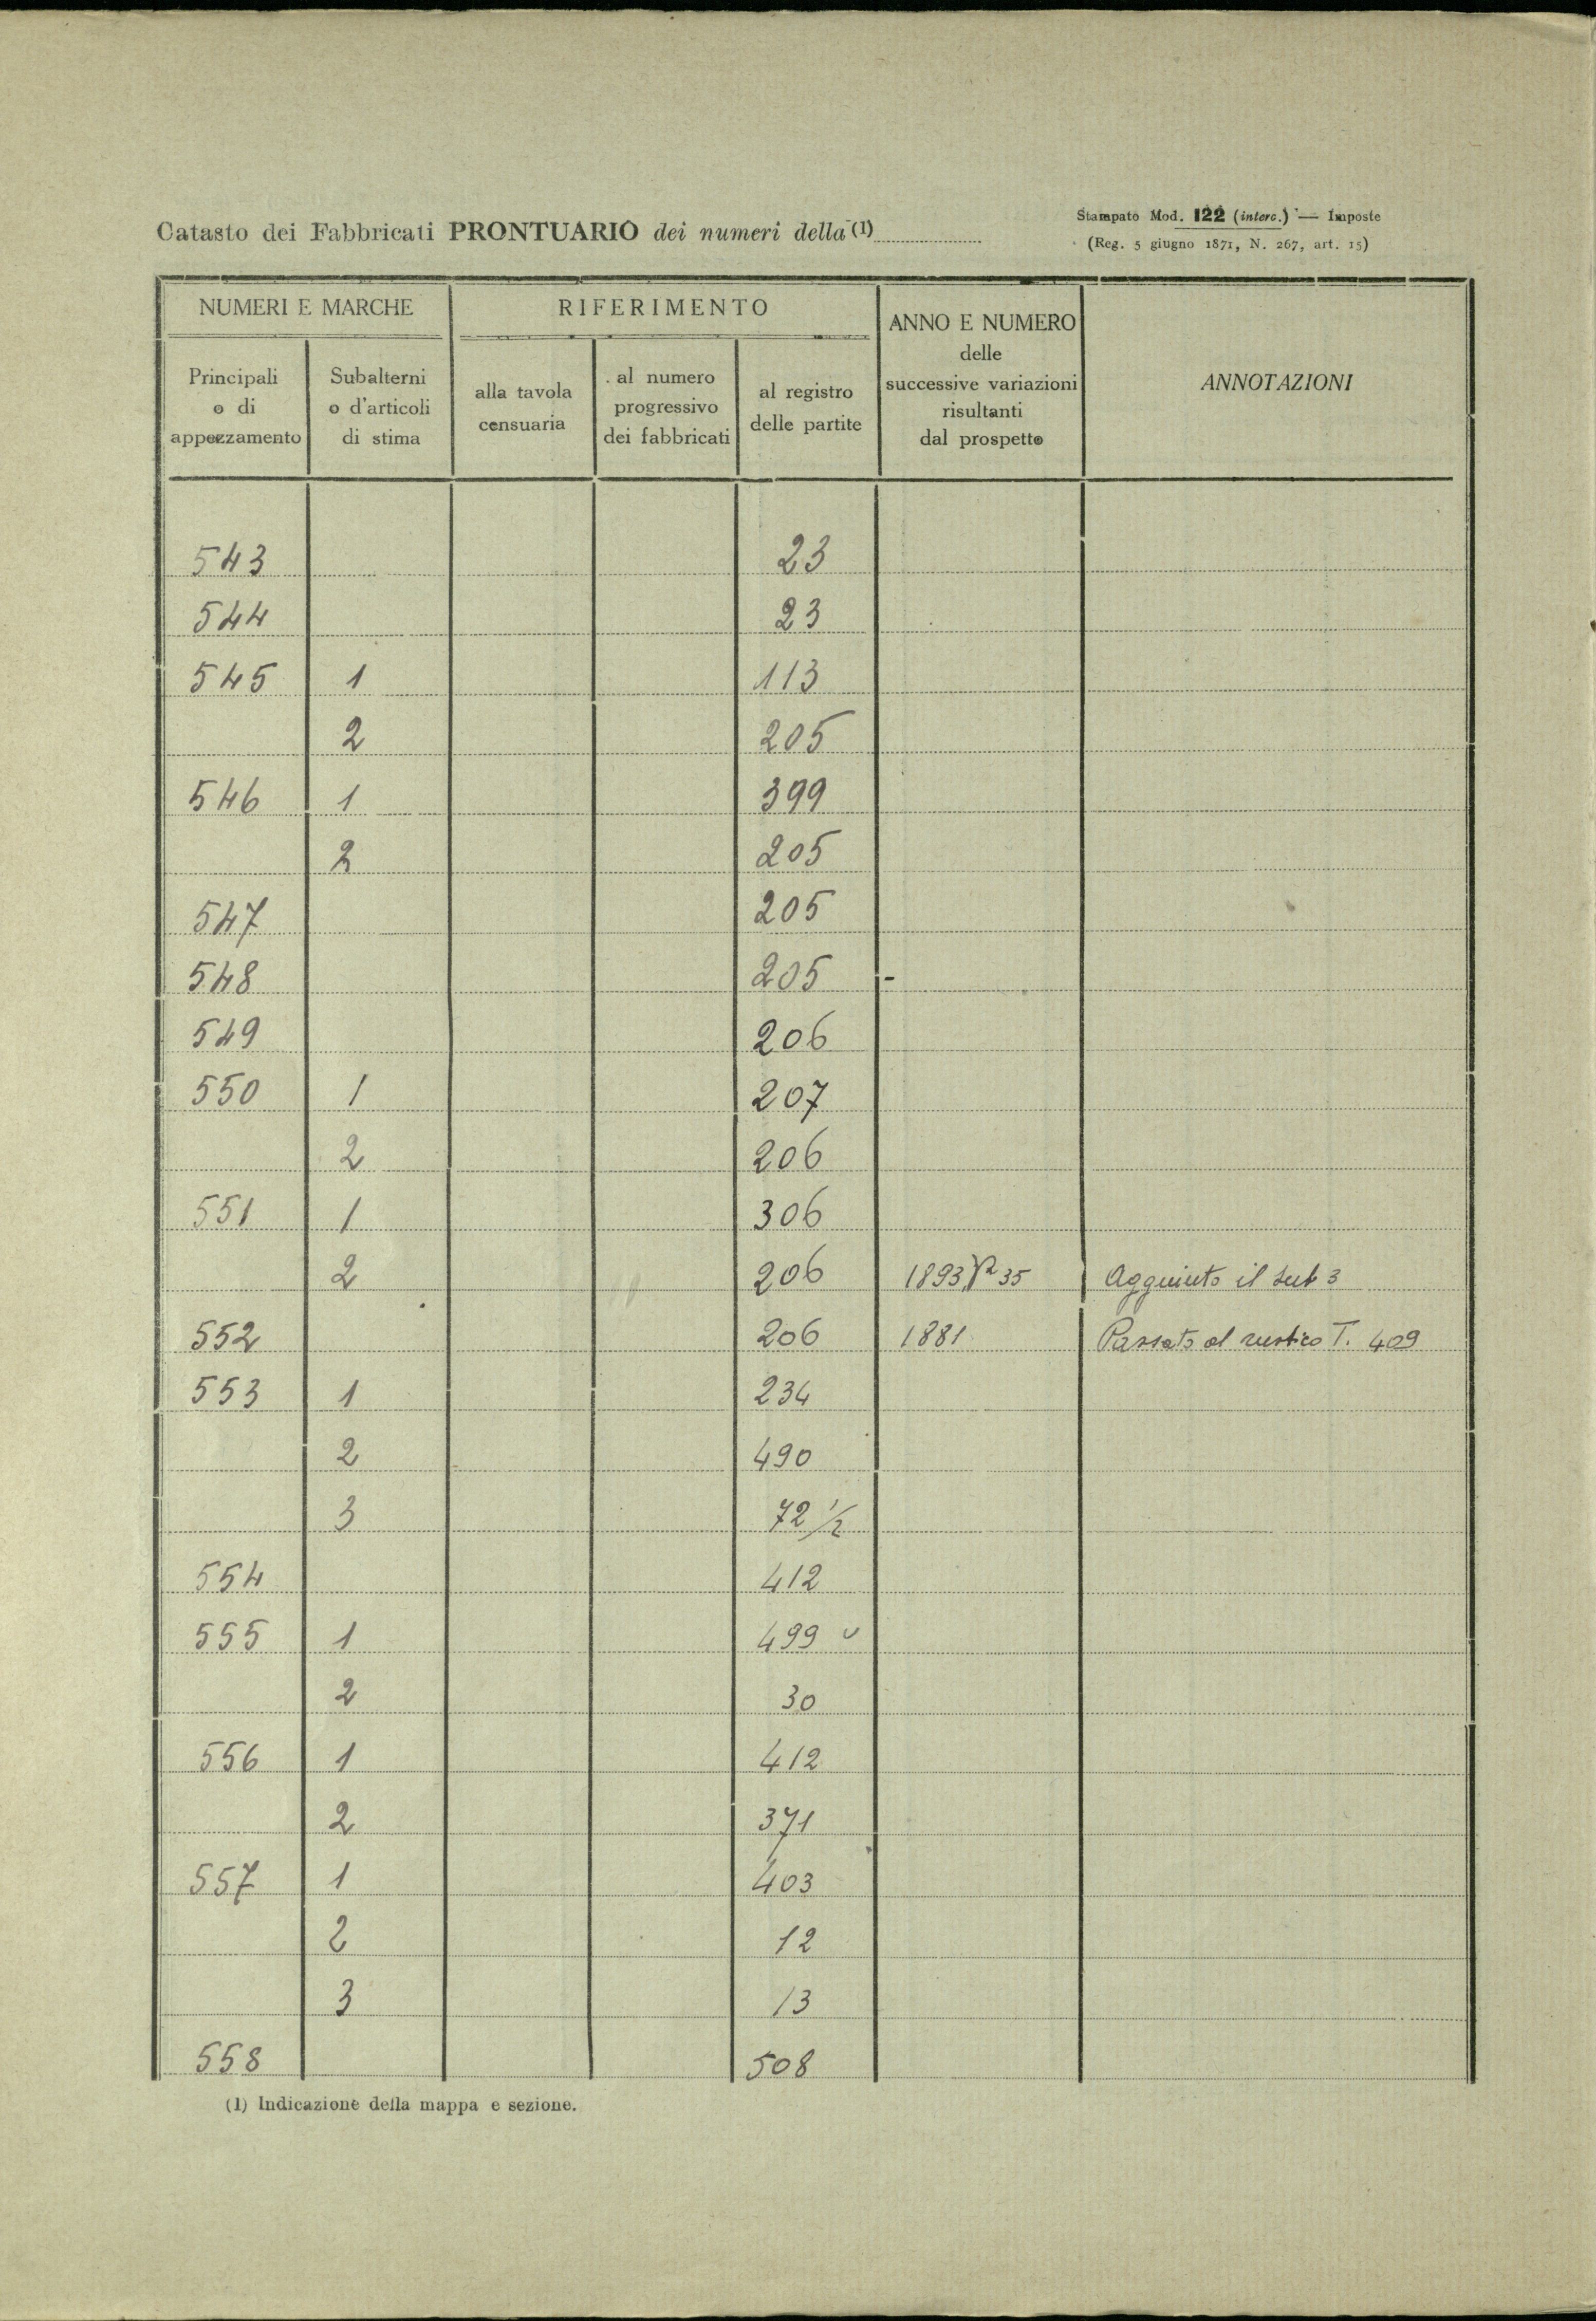 Catasto dei Fabbricati PRONTUARIO dei numeri della (1)
Stampato Mod. 122 (interc.) — Imposte
(Reg. 5 giugno 1871, N. 267, art. 15)
NUMERI E MARCHE
RIFERIMENTO
ANNO E NUMERO
delle
successive variazioni
risultanti
dal prospetto
ANNOTAZIONI
Principali
o di
appezzamento
Subalterni
o d'articoli
di stima
alla tavola
censuaria
al numero
progressivo
dei fabbricati
al registro
delle partite
543 23
544 23
545 1 113
2 205
546 1 399
2 205
547 205
548 205 -
549 206
550 1 207
2 206
551 1 306
2 206 1893 35 Aggiunto il sub 3
552 206 1881 Passato al rustico T. 409
553 1 234
2 490
3 72 1/2
554 412
555 1 499
2 30
556 1 412
2 371
557 1 403
2 12
3 13
558 508
(1) Indicazione della mappa e sezione.